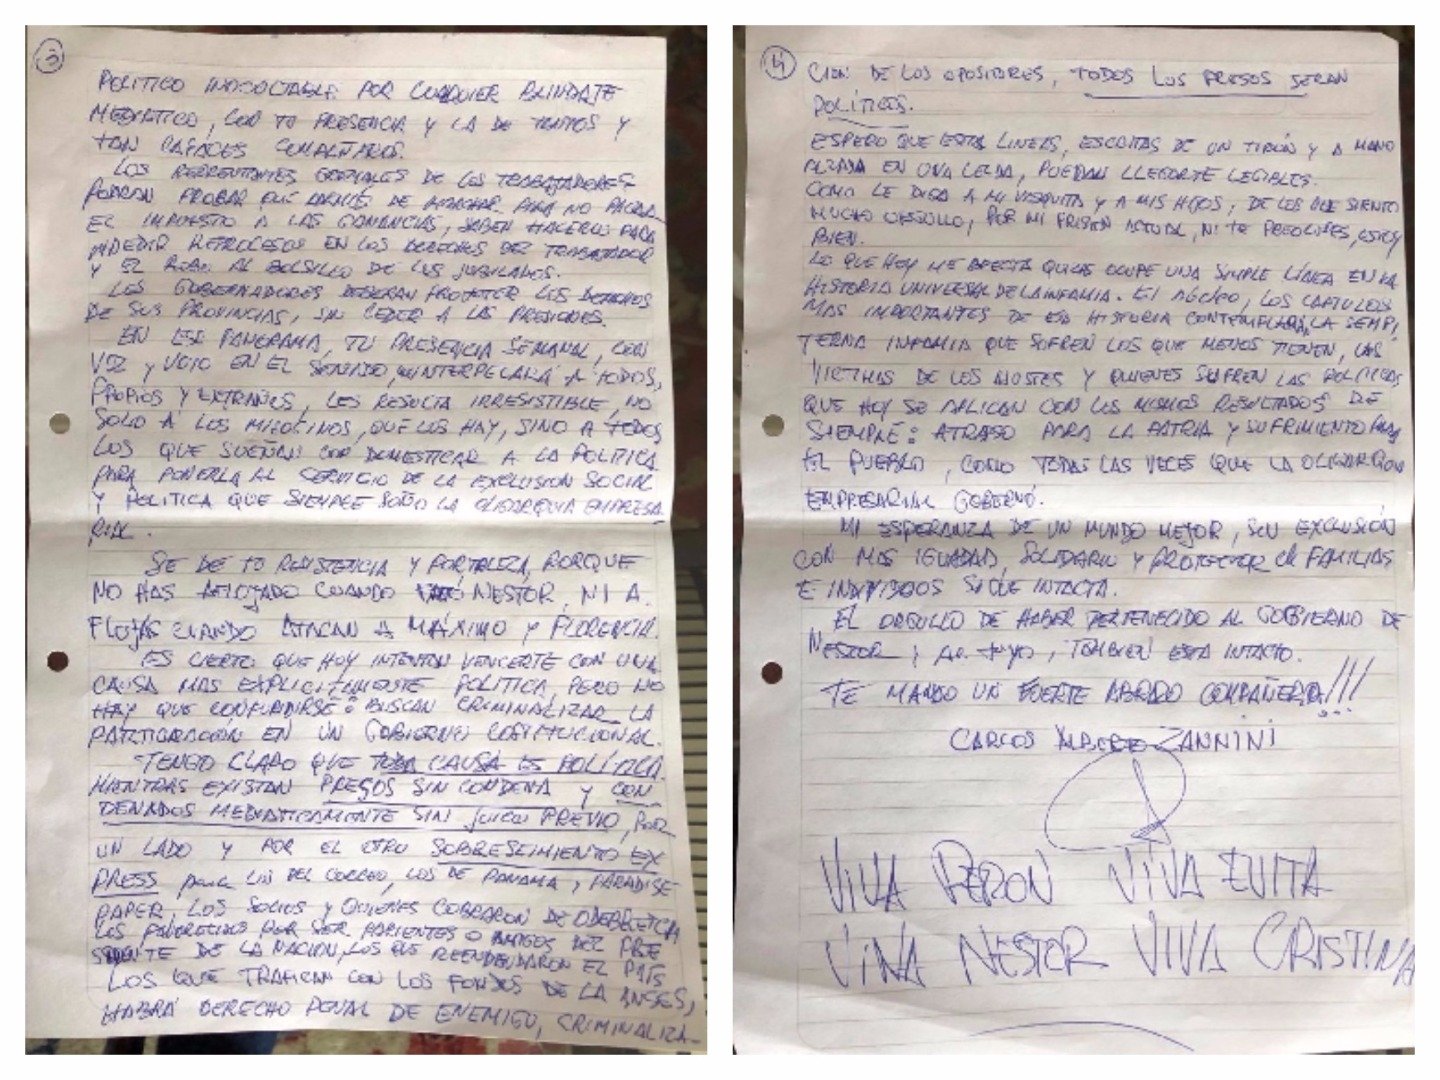 3
POLITICO INOCULTABLE POR CUALQUIER BLINDAJE
MEDIATICO, CON TU PRESENCIA Y LA DE TANTOS Y
TAN CAPACES COMPAÑEROS.
LOS REPRESENTANTES GREMIALES DE LOS TRABAJADORES
PODRAN PROBAR QUE ADEMÁS DE PARA NO PAGAR
EL IMPUESTO A LAS GANANCIAS, SABEN HACERLO PARA
IMPEDIR RETROCESOS EN LOS DERECHOS DEL TRABAJADOR
Y EL ROBO AL BOLSILLO DE LOS JUBILADOS.
LOS GOBERNADORES DEBERAN PROTEGER LOS DERECHOS
DE SUS PROVINCIAS, SIN CEDER A LAS PRESIONES.
EN ESE PANORAMA, TU PRESENCIA SEMANAL, CON
VOZ Y VOTO EN EL SENADO, INTERPELARÁ A TODOS,
PROPIOS Y EXTRAÑOS, LES RESULTA IRRESISTIBLE, NO
SOLO A LOS , QUE LOS HAY, SINO A TODOS
LOS QUE SUEÑAN CON DOMESTICAR A LA POLITICA
PARA PONERLA AL SERVICIO DE LA EXCLUSION SOCIAL
Y POLITICA QUE SIEMPRE SOÑO LA OLIGARQUIA EMPRESA
RIAL.
SE DE TU RESISTENCIA Y FORTALEZA, PORQUE
NO HAS AFLOJADO CUANDO NESTOR, NI A
FLOJAS CUANDO ATACAN A MÁXIMO Y FLORENCIA.
ES CIERTO QUE HOY INTENTAN VENCERTE CON UNA
CAUSA MAS EXPLICITAMENTE POLITICA, PERO NO
HAY QUE CONFUNDIRSE: BUSCAN CRIMINALIZAR LA
PARTICIPACIÓN EN UN GOBIERNO CONSTITUCIONAL.
TENGO CLARO QUE TODA CAUSA ES POLÍTICA
MIENTRAS EXISTAN PRESOS SIN CONDENA Y CON
DENADOS MEDIATICAMENTE SIN JUICIO PREVIO, POR
UN LADO Y POR EL OTRO SOBRESEIMIENTO EX
PRESS para LOS DEL CORREO, LOS DE PANAMA, PARADISE
PAPER, LOS SOCIOS Y QUIENES COBRARON DE ODEBRETCH
LOS FAVORECIDOS POR SER PARIENTES O AMIGOS DEL PRE
SIDENTE DE LA NACION, LOS QUE REENDEUDARON EL PAÍS
LOS QUE TRAFICAN CON LOS FONDOS DE LA ANSES,
HABRÁ DERECHO PENAL DE ENEMIGO, CRIMINALIZA-
4
CION DE LOS OPOSITORES, TODOS LOS PRESOS SERAN
POLÍTICOS.
ESPERO QUE ESTAS LINEAS, ESCRITAS DE UN TIRÓN Y A MANO
ALZADA EN UNA CELDA, PUEDAN LLEGARTE LEGIBLES.
COMO LE DIGO A MI Y A MIS HIJOS, DE LOS QUE SIENTO
MUCHO ORGULLO, POR MI PRISIÓN ACTUAL, NI TE PREOCUPES, ESTOY
BIEN.
LO QUE HOY ME AFECTA QUIZAS OCUPE UNA SIMPLE LÍNEA EN LA
HISTORIA UNIVERSAL DE LA INFAMIA. El núcleo, LOS CAPITULOS
MAS IMPORTANTES DE ESA HISTORIA CONTEMPLARÁ, LA SEMPI
TERNA INFAMIA QUE SUFREN LOS QUE MENOS TIENEN, LAS
VICTIMAS DE LOS AJUSTES Y QUIENES SUFREN LAS POLITICAS
QUE HOY SE APLICAN CON LOS MISMOS RESULTADOS DE
SIEMPRE: ATRASO PARA LA PATRIA Y SUFRIMIENTO para
EL PUEBLO, COMO TODAS LAS VECES QUE LA OLIGARQUIA
EMPRESARIAL GOBERNÓ.
MI ESPERANZA DE UN MUNDO MEJOR, SIN EXCLUSIÓN
CON MAS IGUALDAD, SOLIDARIO Y PROTECTOR de FAMILIAS
E INDIVIDUOS SIGUE INTACTA.
EL ORGULLO DE HABER PERTENECIDO AL GOBIERNO DE
NESTOR Y AL TUYO, TAMBIÉN ESTA INTACTO.
TE MANDO UN FUERTE ABRAZO COMPAÑERA!!!
CARLOS ALBERTO ZANNINI
VIVA PERON VIVA EVITA
VIVA NESTOR VIVA CRISTINA